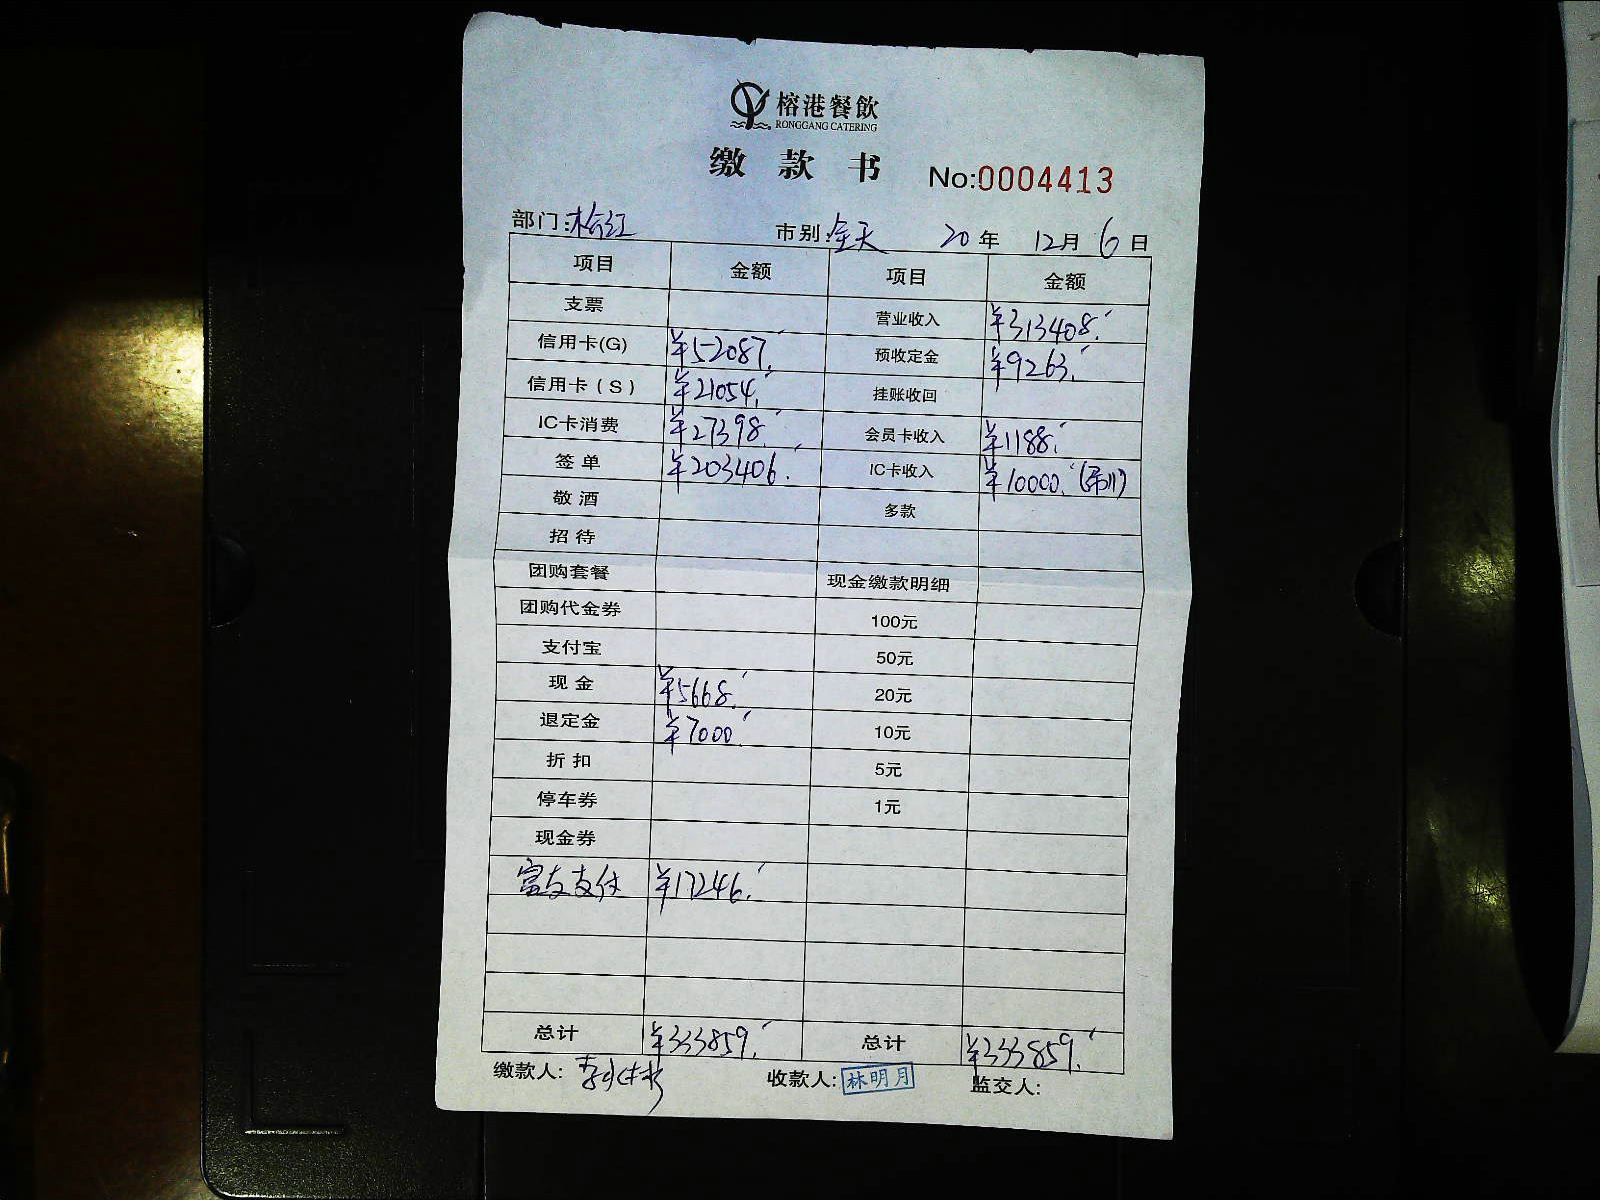 榕港餐飲
RONGGANG CATERING
缴款书 No:0004413
部门: 市别:全天 20年 12月 6日
项目 金额 项目 金额
支票 营业收入 ¥313408.
信用卡(G) ¥52087. 预收定金 ¥9263.
信用卡(S) ¥21054. 挂账收回
IC卡消费 ¥27398. 会员卡收入 ¥1188.
签单 ¥203406. IC卡收入 ¥10000.
敬酒 多款
招待
团购套餐 现金缴款明细
团购代金券 100元
支付宝 50元
现金 ¥5668. 20元
退定金 ¥7000. 10元
折扣 5元
停车券 1元
现金券
富友支付 ¥17246.
总计 ¥333859. 总计 ¥333859.
缴款人: 收款人:林明月 监交人: